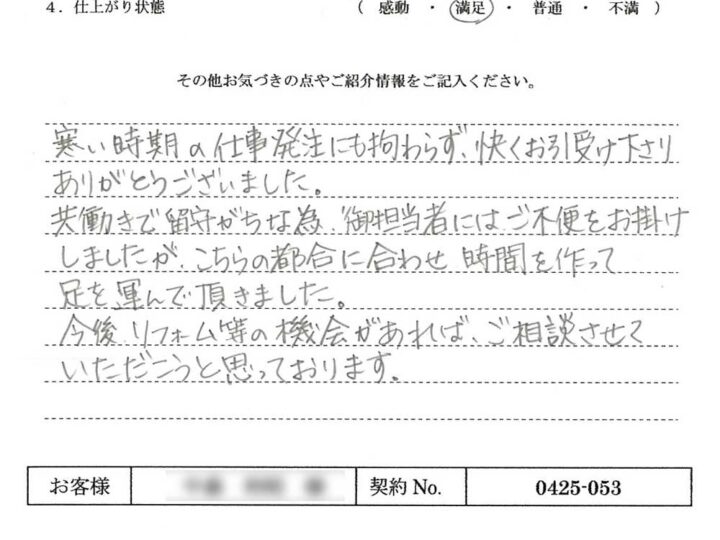 4．仕上がり状態　（ 感動 ・ 満足 ・ 普通 ・ 不満 ）
その他お気づきの点やご紹介情報をご記入ください。
寒い時期の仕事発注にも拘わらず、快くお引受け下さり
ありがとうございました。
共働きで留守がちな為、御担当者にはご不便をお掛け
しましたが、こちらの都合に合わせ 時間を作って
足を運んで頂きました。
今後 リフォーム等の機会があれば、ご相談させて
いただこうと思っております。
お客様　契約No.　0425-053